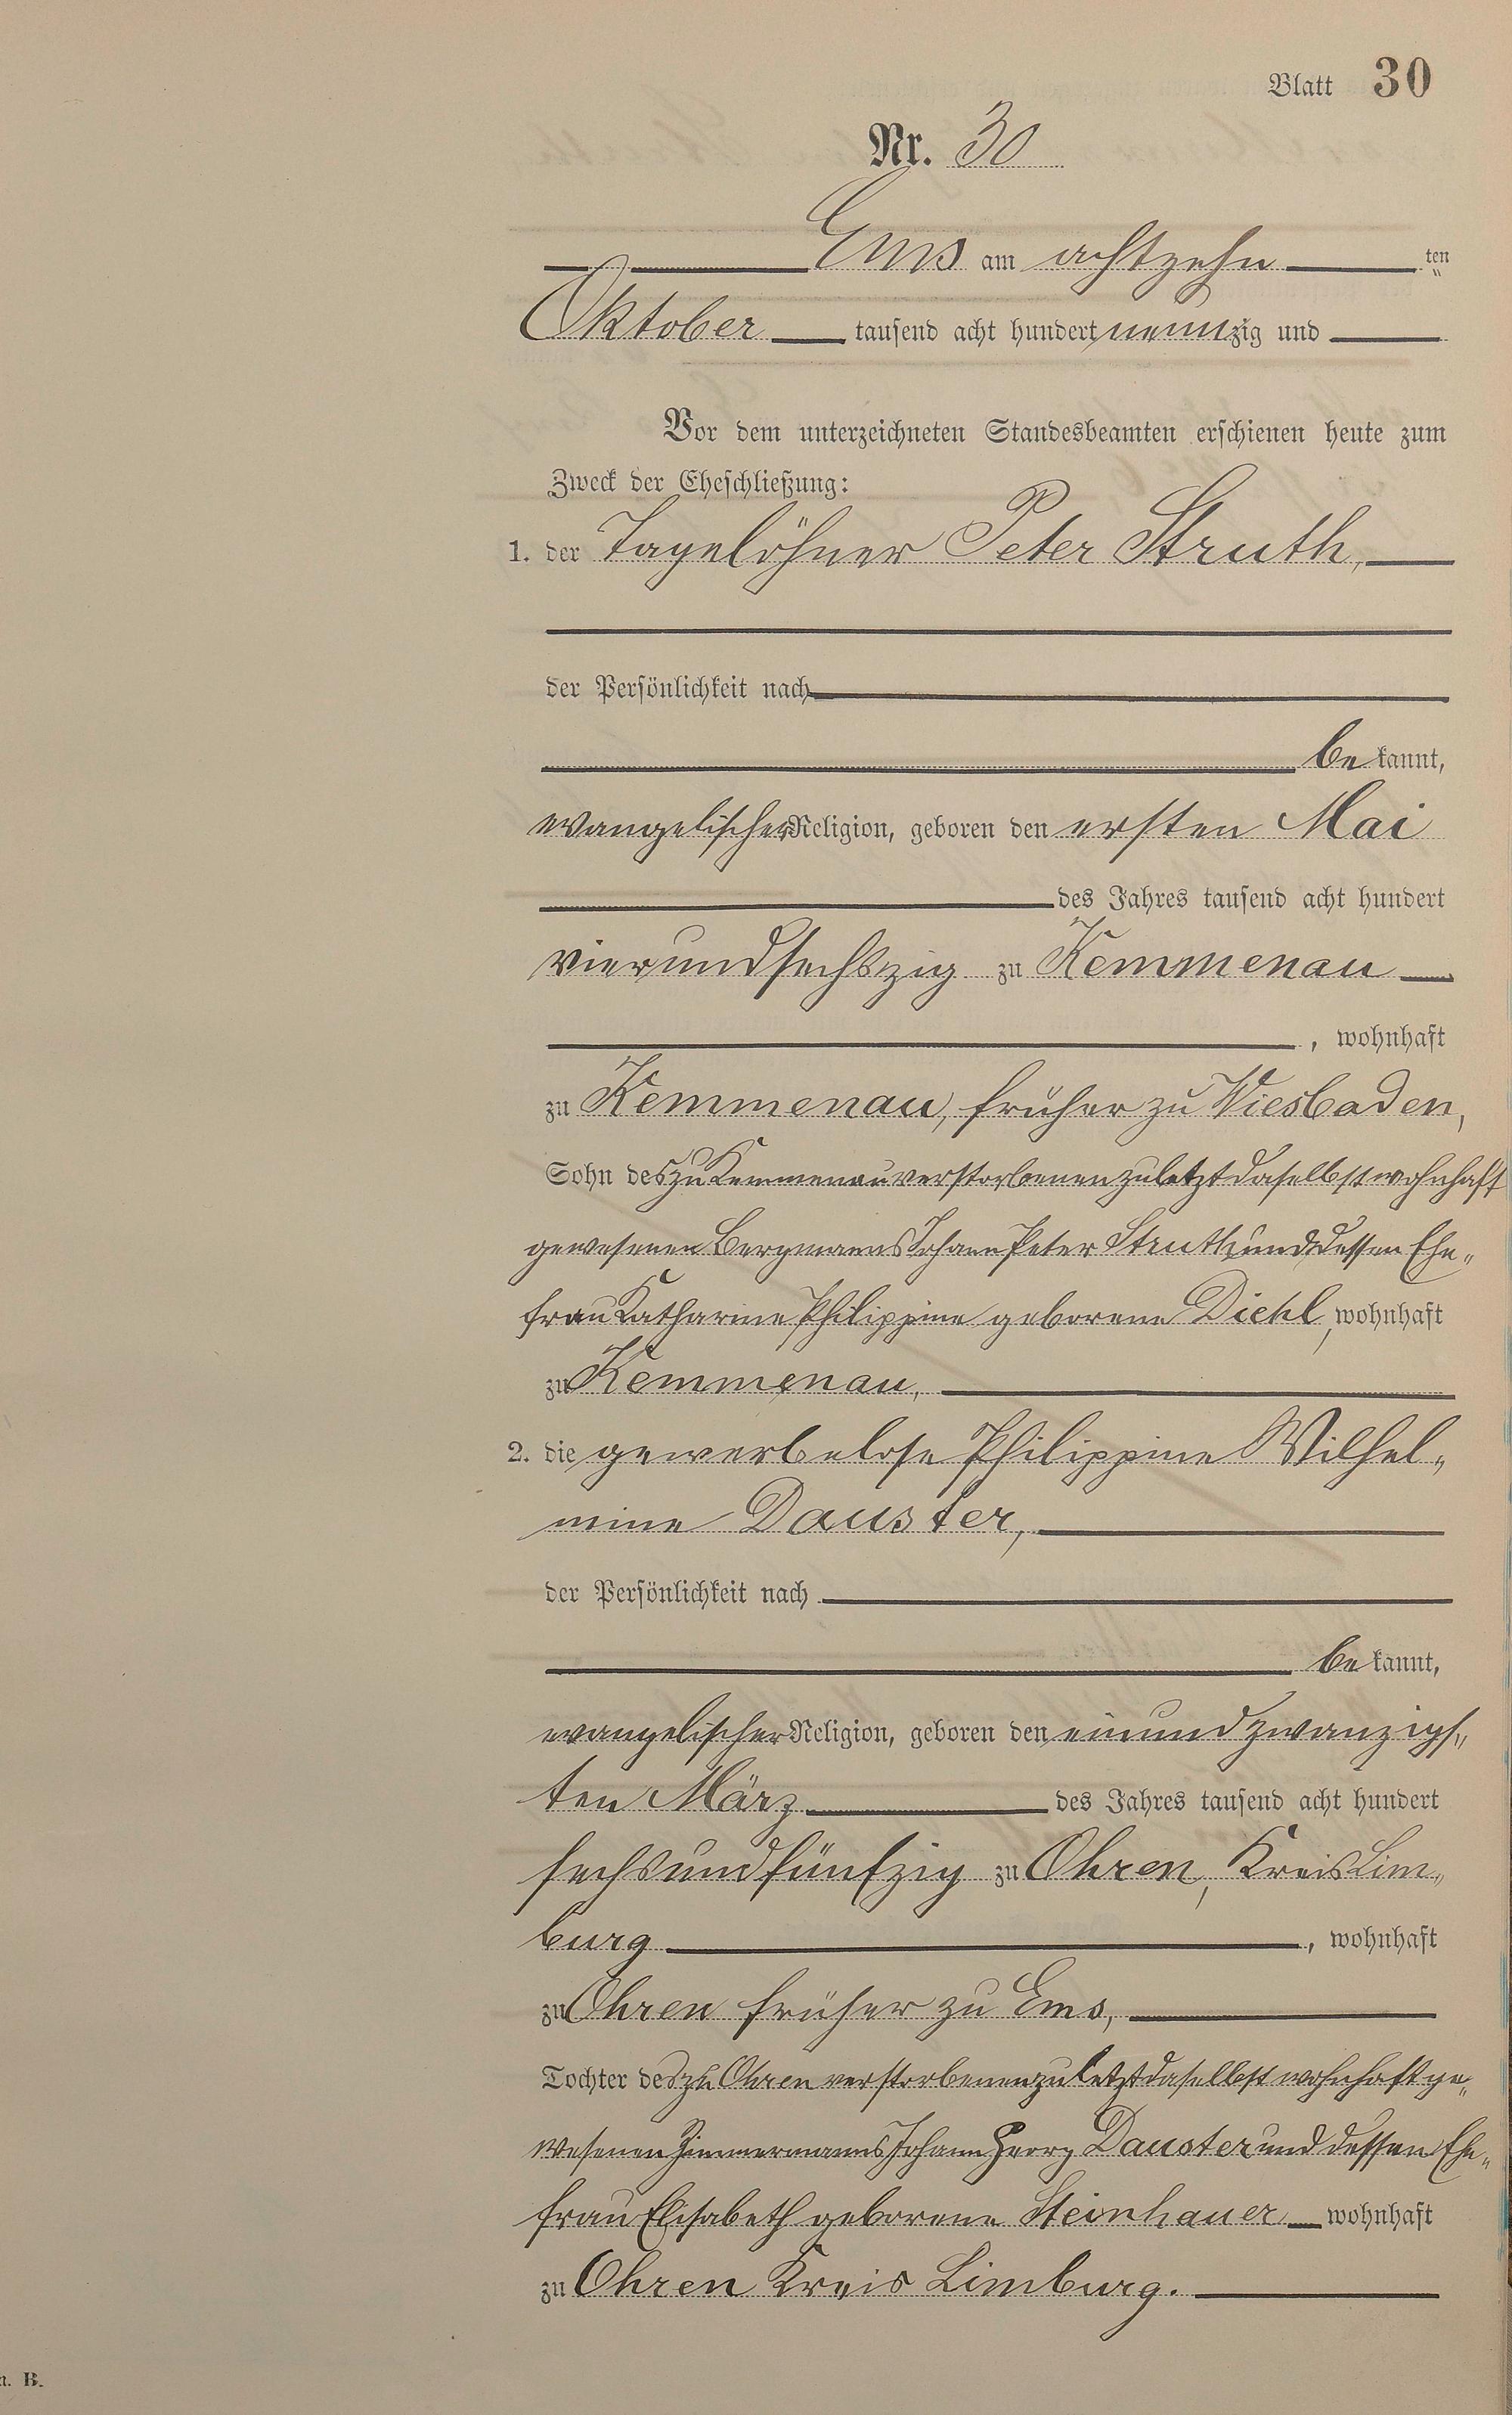 Blatt 30
Nr. 30
Ems am achtzehn ten
Oktober tausend acht hundert neunzig und
Vor dem unterzeichneten Standesbeamten erschienen heute zum
Zweck der Eheschließung:
1. der Tagelöhner Peter Struth,
der Persönlichkeit nach
be kannt,
evangelischer Religion, geboren den ersten Mai
des Jahres tausend acht hundert
vierundsechszig zu Kemmenau
, wohnhaft
zu Kemmenau, früher zu Wiesbaden,
Sohn des zu Kemmenau verstorbenen zuletzt daselbst wohnhaft
gewesenen Bergmanns Johann Peter Struth und dessen Ehe„
frau Katharine Philippine geborene Diehl, wohnhaft
zu Kemmenau,
2. die gewerbelose Philippine Wilhel„
mine Dauster,
der Persönlichkeit nach
be kannt,
evangelischer Religion, geboren den einundzwanzigs„
ten März des Jahres tausend acht hundert
sechsundfünfzig zu Ohren, Kreis Lim„
burg , wohnhaft
zu Ohren früher zu Ems,
Tochter des zu Ohren verstorbenen zuletzt daselbst wohnhaft ge„
wesenen Zimmermanns Johann Georg Dauster und dessen Ehe„
frau Elisabeth geborene Steinhauer wohnhaft
zu Ohren Kreis Limburg.
B.